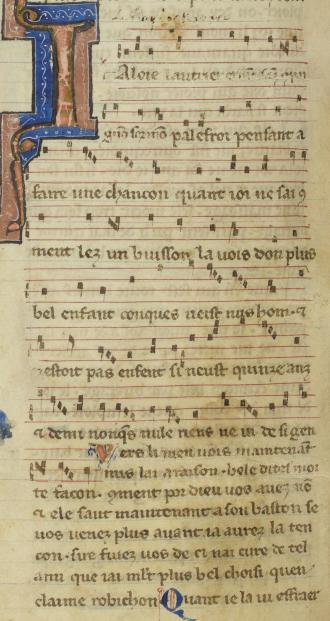 Ialoie lautrier errant sanz con
gnõ ser mõ palefroi pensant a
faire une chancon quant ioi ne sai 9
ment lez un buisson la uois dou plus
bel enfant conques ueist nus hom. ⁊
nestoit pas enfent si neust quinze anz
⁊ demi nonqs nule riens ne ui de si gen
Vers li men uois maintenant
mis lai a raison. bele dites moi
te facon. 9ment por dieu uos auez nõ
⁊ ele saut maintenant a son baston se
uos uenez plus auant ia aurez la ten
con. sire fuiez uos de ci nai cure de tel
ami que iai mlt plus bel choisi quen
claime robichon Quant ie la ui effraer